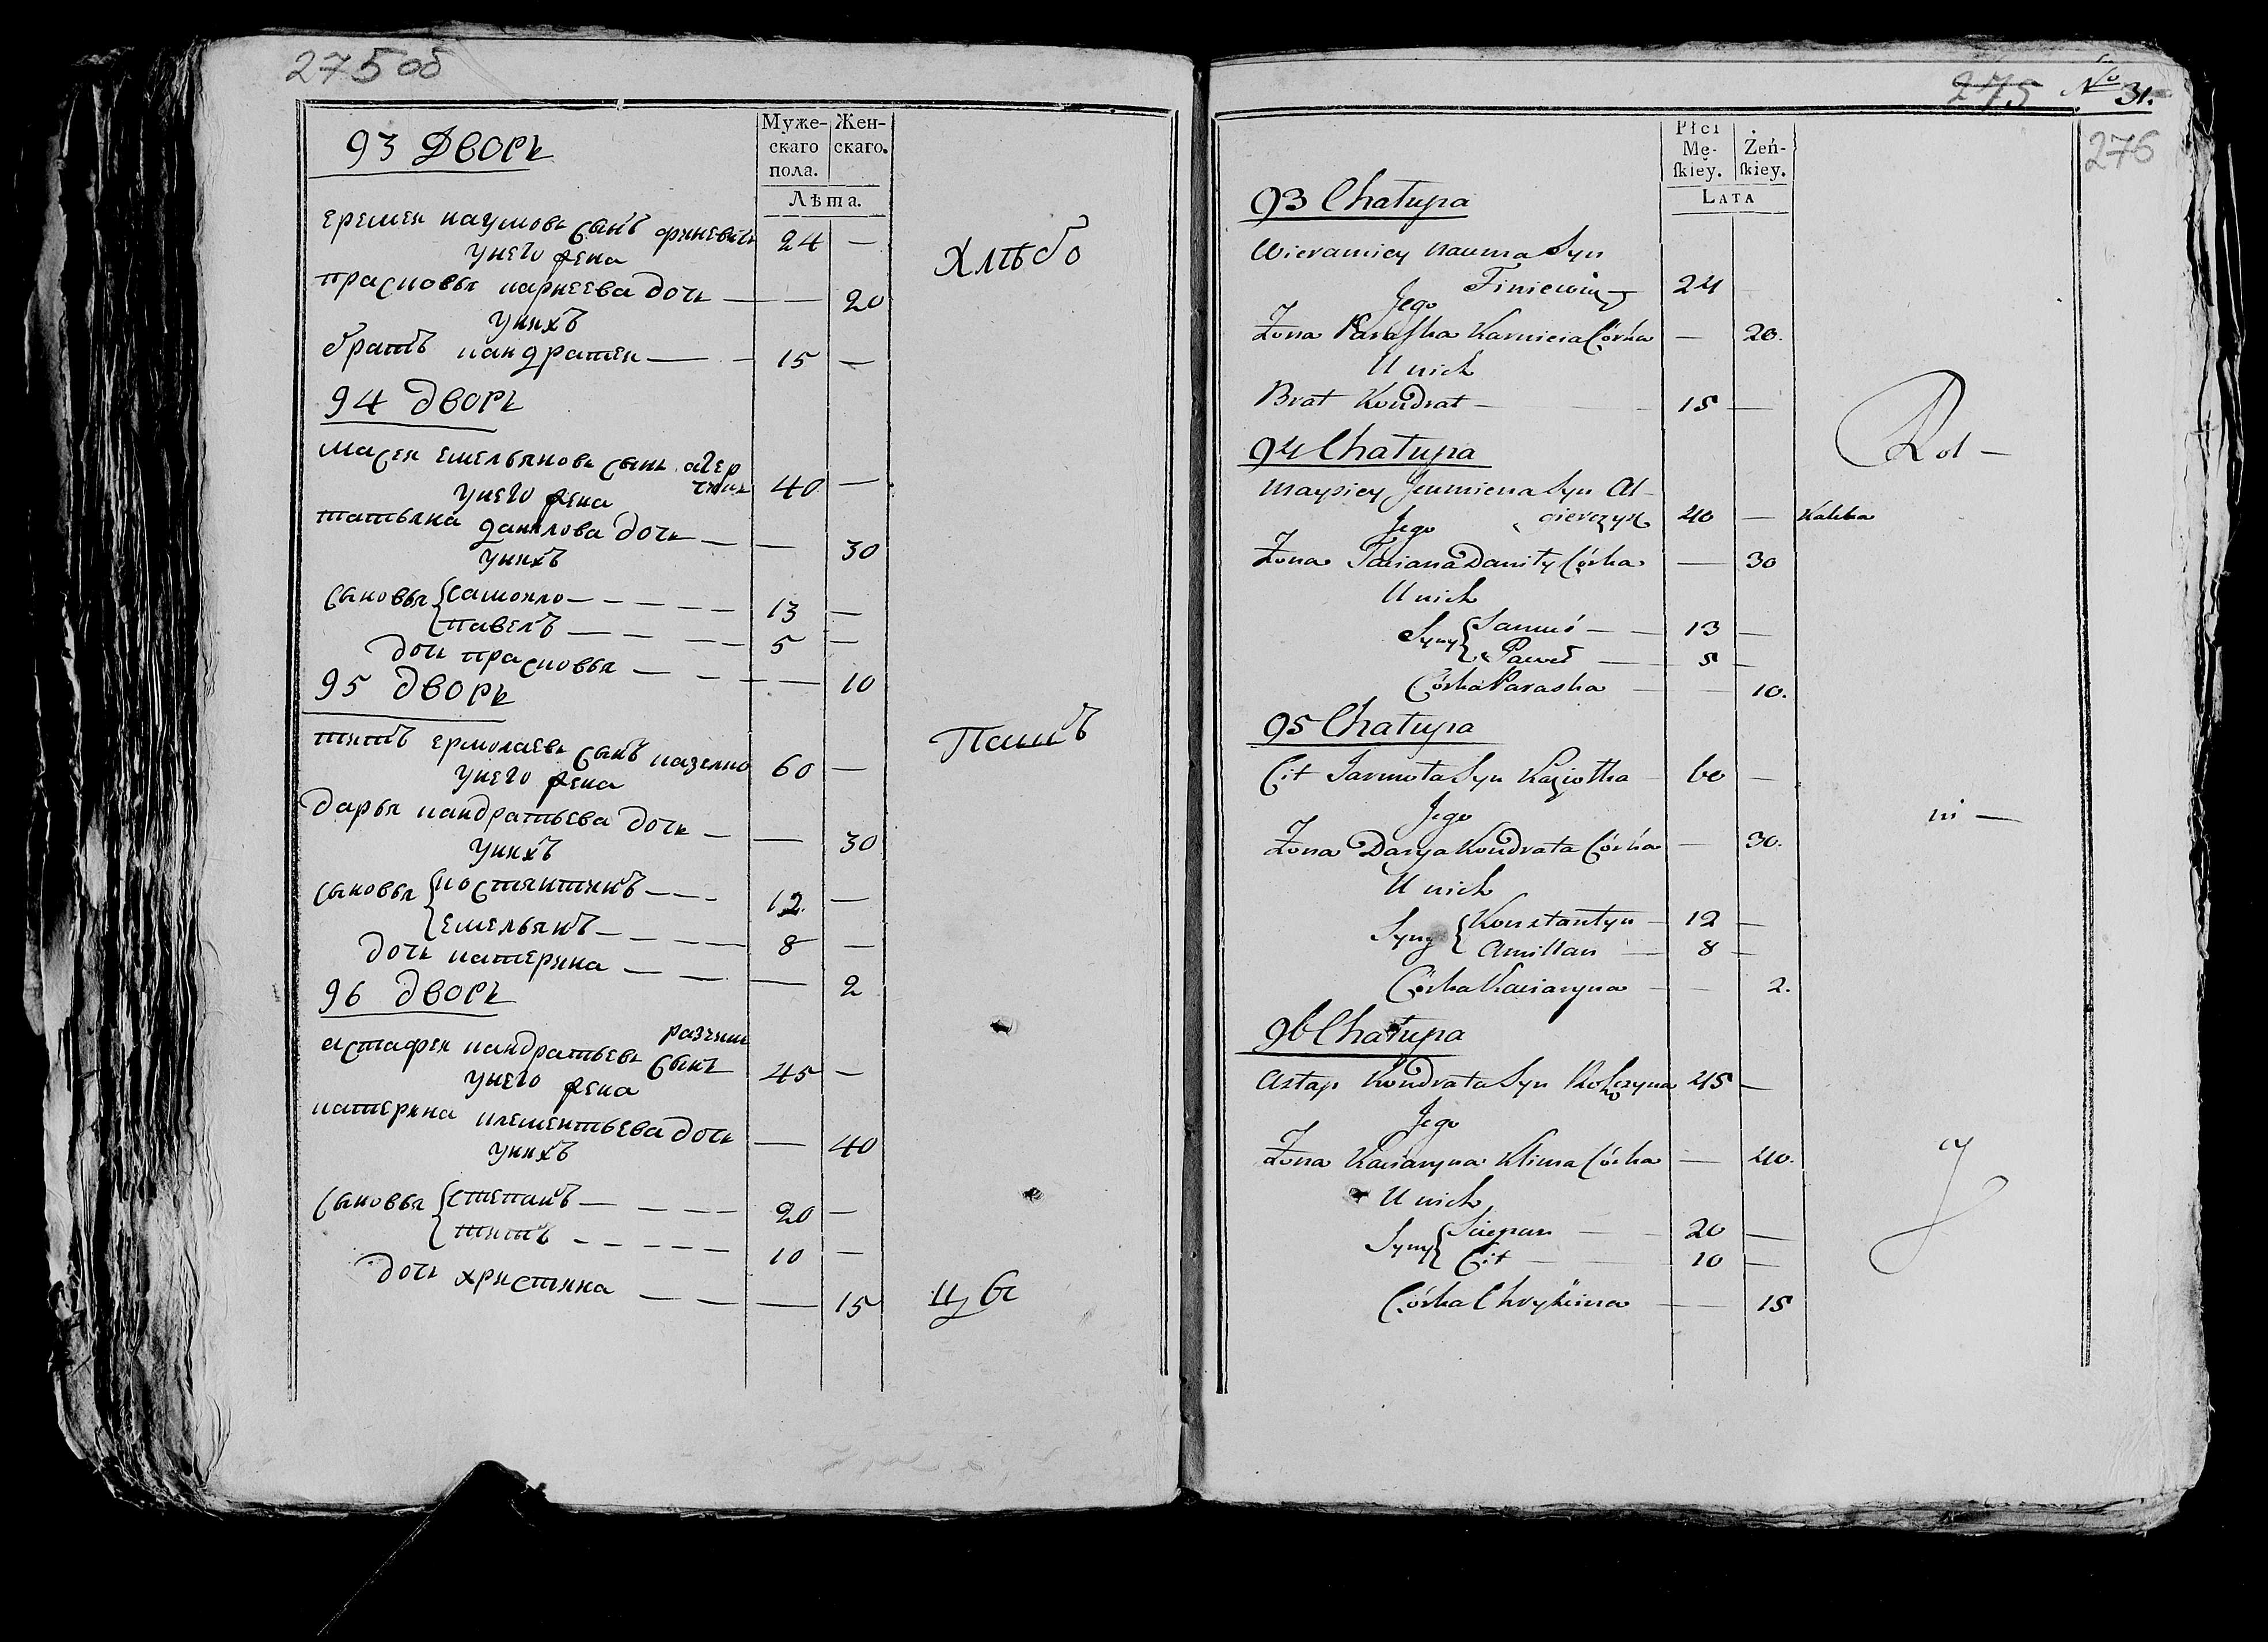 275 об
93 Дворъ
Муже-
скаго
пола.
Жен-
скаго.
Лѣта.
еремей наумовъ сынъ финевичъ 24 —
у него жена
прасковья карнеева дочь — — 20
у нихъ
братъ кандратей — — 15 —
Хлѣбо
94 дворъ
Масей емельяновъ сынъ агер
чикъ 40 —
у него жена
татьяна данилова дочь — — 30
у нихъ
сыновья { самойло — — — — — 13 —
павелъ — — — — 5 —
дочь прасковья — — — — 10
95 дворъ
титъ ермолаевъ сынъ казелко 60 —
у него жена
дарья кандратьева дочь — — 30
у нихъ
сыновья { костянтинъ — — — 12. —
емельянъ — — — — 8 —
дочь катерина — — — — 2
Пашъ
96 дворъ
астафей кандратьевъ сынъ 45 —
у него жена
катерина клементьева дочь — 40
у нихъ
сыновья { степанъ — — — — 20 —
титъ — — — — — 10 —
дочь христина — — — — 15
цы
275 No 31.
276
Płci
Mę-
skiey.
Żeń-
skiey.
LATA
93 Chałupa
Wieramiey Nauma Syn
Finiewicz 24 —
Jego
Żona Paraska Karnieia Córka — 20.
U nich
Brat Kondrat — — 15 —
94 Chałupa
Maysiey Jemiliena Syn Al-
gierczyk 40 — Kalika
Jego
Żona Taciana Daniły Córka — 30
U nich
Syny { Samuś — — 13 —
Paweł — 5 —
Córka Paraska — — 10.
Rol —
95 Chałupa
Cit Jarmoła Syn Kaziołka — 60 —
Jego
Żona Darya Kondrata Córka — 30.
U nich
Syny { Konstantyn — 12 —
Amillan — 8 —
Córka Kaciaryna — — 2.
ni —
96 Chałupa
Astap Kondrata Syn 45 —
Jego
Żona Kaciaryna Klima Córka — 40.
U nich
Syny { Sciepan — — 20 —
Cit — — 10 —
Córka Chryścina — — 15
cy